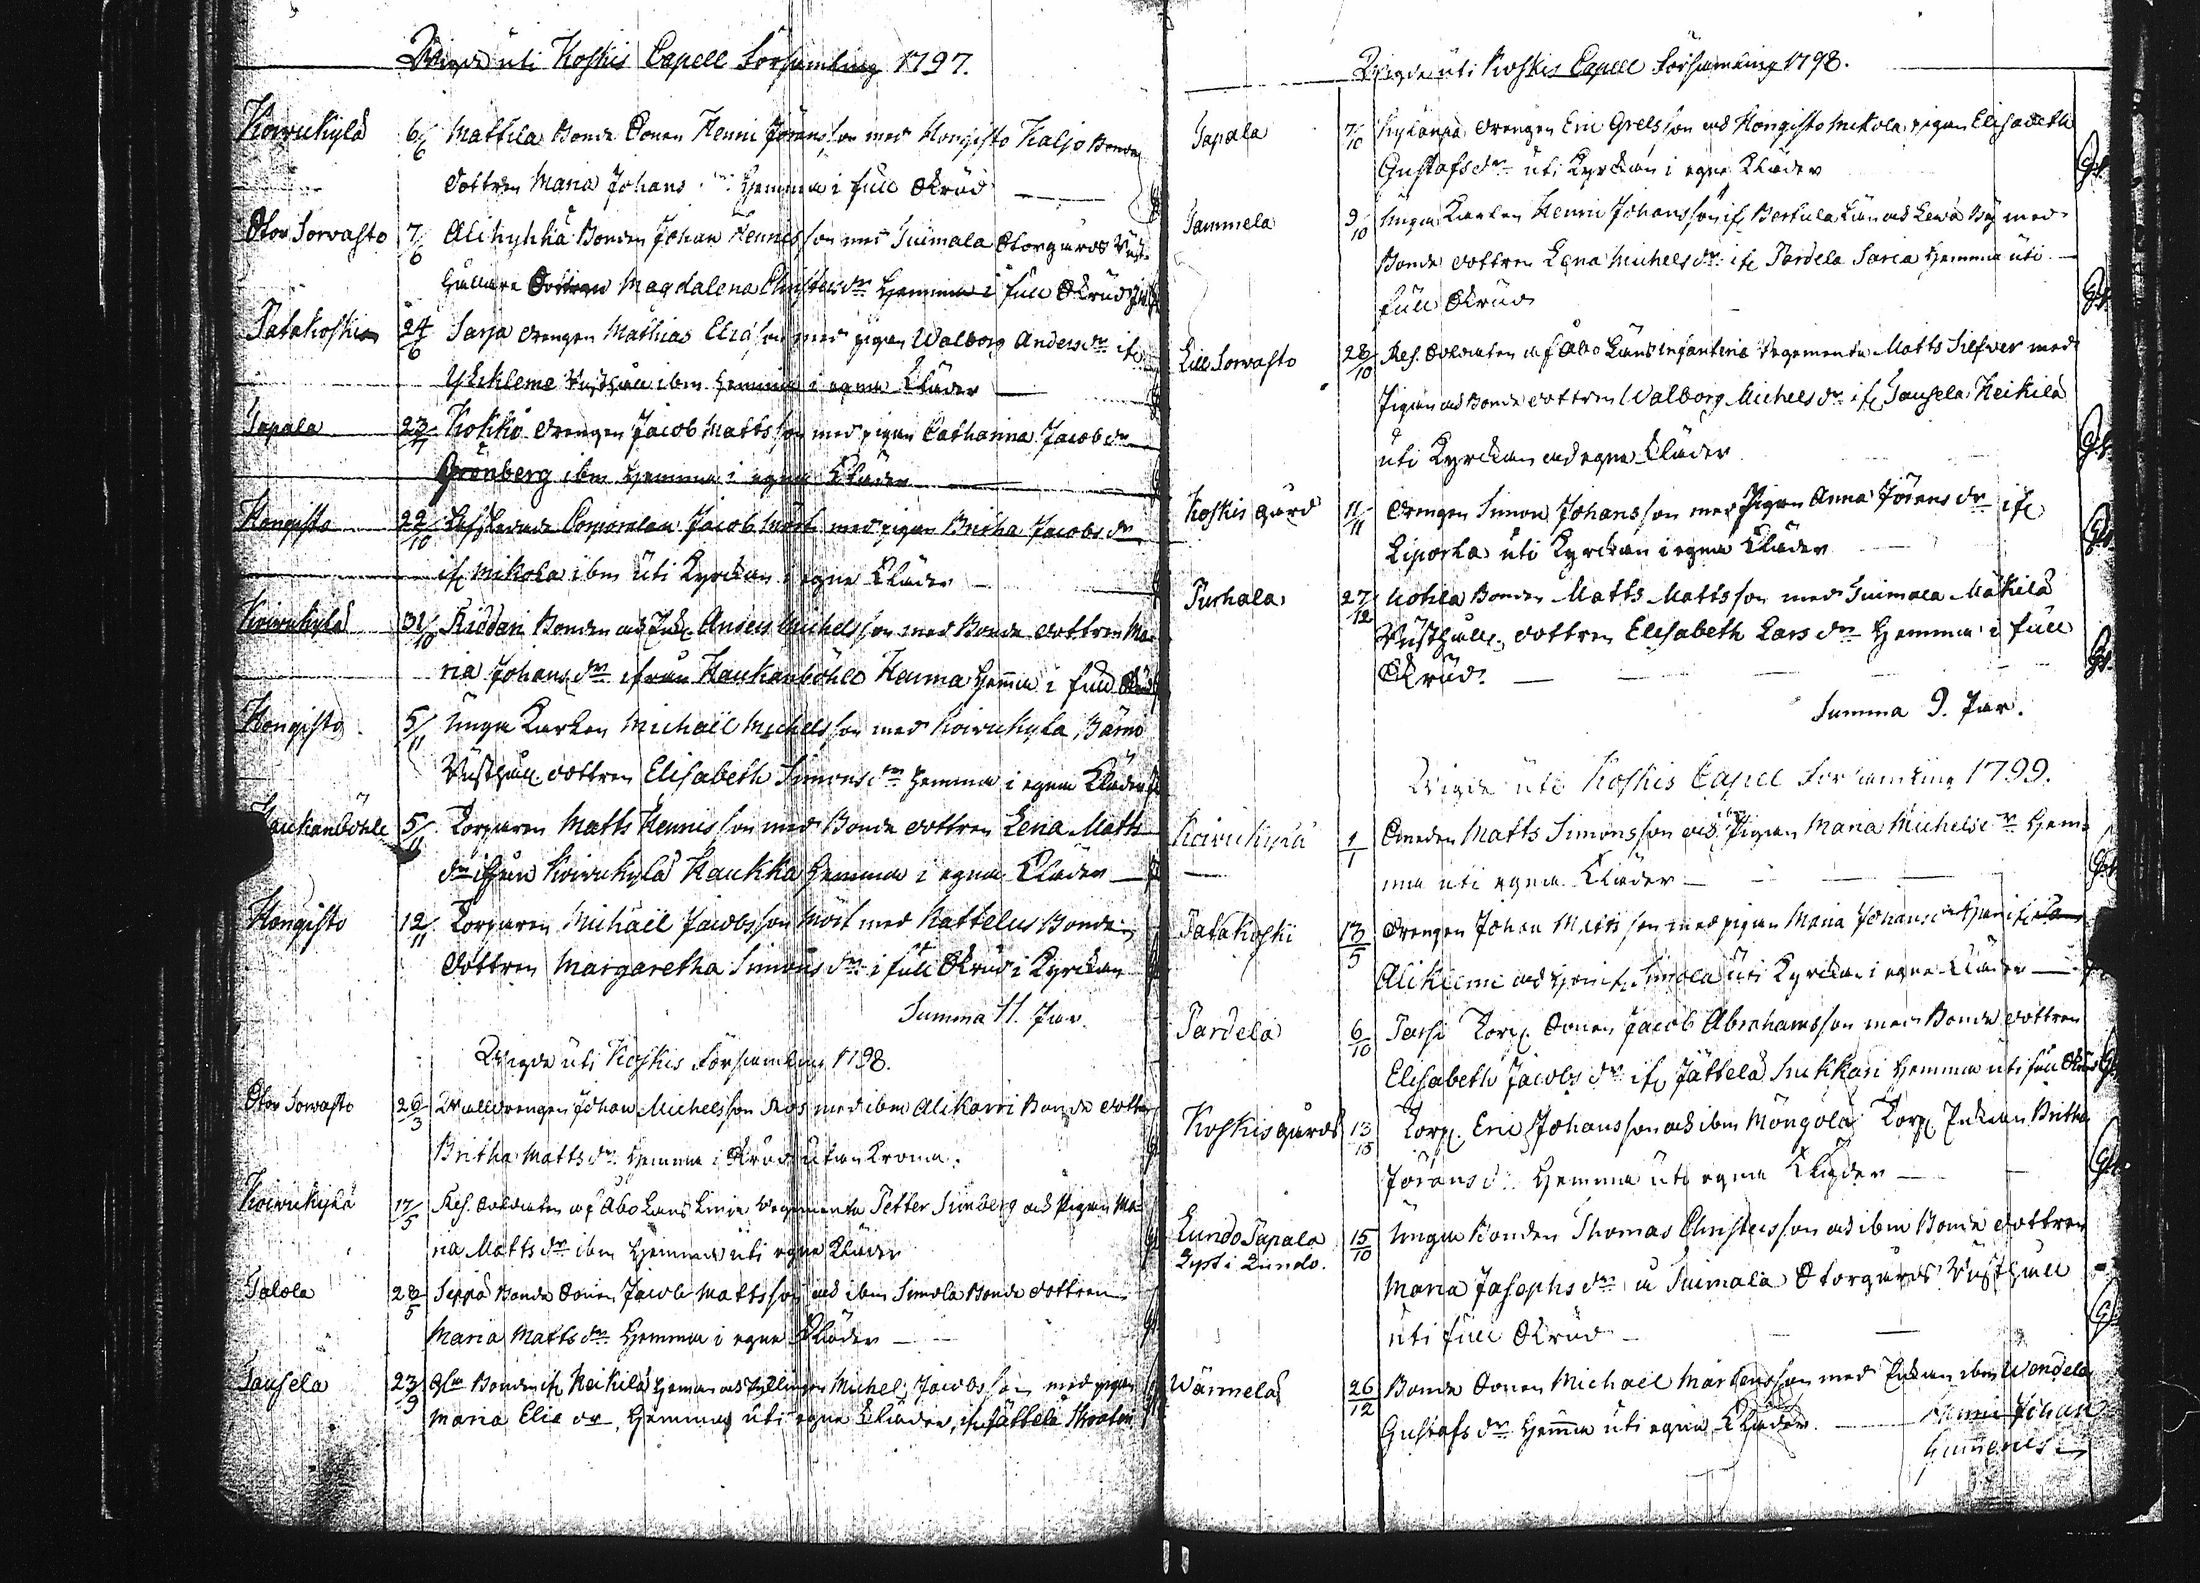 Wigde uti Koskis Capell Församling 1797.
Koivukylä 6/6 Mattila Bonde Sonen Henric Jöransson med Hongisto Kaljo Bonde
dottren Maria Johans Hemma i full Skrud
Stor Sorvasto 7/6 Alikyhkä Bonden Johan Hennesson med Suimala Storgårds Rust
hållare Dottren Magdalena Christersdr Hemma i full Skrud
Patakoski 24/6 Sarja drengen Mathias Eliæson med pigan Walborg Andersdr if
Ylikleme Rusthåll ibm hemma i egna Kläder
Tapala 23/7 Kokko drengen Jacob Mattsson med pigan Catharina Jacobsdr
Grönberg ibm hemma i egna Kläder
Hongisto 22/10 Corporalen Jacob med pigan Britha Jacobsdr
if Mikola ibm uti Kyrckan i egna Kläder
Koivukylä 31/10 Riddari Bonden och Anders Michelsson med Bonde dottren Ma
ria Johansdr ifrån Haukanböhle Hemma i full Skrud
Hongisto 5/11 Unga Karlen Michaël Michelsson med Koivukyla Bärno
Rusthåll dottren Elisabeth Simonsdr hemma i egna Kläder
Haukanböhle 5/11 Torparen Matts Hennisson med Bonde dottren Lena Matts
dr ifrån Koivukylä Haukka Hemma i egna Kläder
Hongisto 12/11 Torparen Michaël Jacobsson Mört med Kattelus Bonde
dottren Margaretha Simonsdr i full Skrud i Kyrckan
Summa 11. Par.
Wigde uti Koskis Församling 1798.
Stor Sorvasto 26/3 Johan Michelsson Ros med ibm Alikarri Bonde dottr
Britha Mattsdr Hemma i Skrud utan Krona.
Koivukylä 17/5 Res. Soldaten af Åbo Läns Regemente Petter Sunberg och Pigan Ma
ria Mattsdr ibm Hemma uti egna Kläder
Talola 28/5 Seppä Bonde Sonen Jacob Mattsson och ibm Simola Bonde dottren
Maria Mattsdr Hemma i egna Kläder
Tausela 23/9 Bonden if Heikilä Michel Jacobsson med pigan
Maria Eliædr Hemma uti egna Kläder, if Jättelä
Wigde uti Koskis Capell Församling 1798.
Tapala 7/10 Kylänpä drengen Eric Grelsson och Hongisto Mikola pigan Elisabeth
Gustafsdr uti Kyrckan i egna Kläder
Tammela 9/10 Unga Karlen Henric Johansson if Bertula med
Bonde dottren Lena Michelsdr if Pardela Saria Hemma uti
full Skrud
Lill Sorvasto 28/10 Res. Soldaten af Åbo Läns Infanterie Regemente Matts Silfver med
Pigan och Bonde dottren Walborg Michelsdr if Tausela Heikilä
uti Kyrckan och egna Kläder
Koskis gård 11/11 drengen Simon Johansson med Pigan Anna Jöransdr if
Liporla uti Kyrckan i egna Kläder
Purhala 27/12 Uohla Bonden Matts Mattsson med Suimala Mäkilä
Rusthålls dottren Elisabeth Larsdr Hemma i full
Skrud.
Summa 9. Par.
Wigde uti Koskis Capell Församling 1799.
Koivukylä 1/1 Smeden Matts Simonsson och Pigan Maria Michelsdr Hem-
ma uti egna Kläder
Patakoski 13/5 drengen Johan Mattsson med pigan Maria Johansdr
Alikleme och Simola uti Kyrckan i egna Kläder
Pardela 6/10 Passi Torp. Sonen Jacob Abrahamsson med Bonde dottren
Elisabeth Jacobsdr if Jättelä Suckkari Hemma uti full Skrud
Koskis gård 13/10 Torp. Eric Johansson och ibm Möngölä Torp. Enkan Britha
Jöransdr Hemma uti egna Kläder
Lundo Tapala 15/10 Unga Bonden Thomas Christersson och ibm Bonde dottren
Lyst i Lundo.
Maria Josephsdr å Suimala Storgårds Rusthåll
uti full Skrud
Wännelä 26/12 Bonde Sonen Michael Mårtensson med Enkan ibm Wendela
Gustafsdr Hemma uti egna Kläder.
Johan